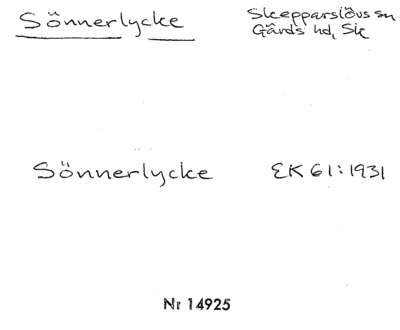 Sönnerlycke
Skepparslövs sn
Gärds hd, Sk
Sönnerlycke
EK 61:1931
Nr 14925